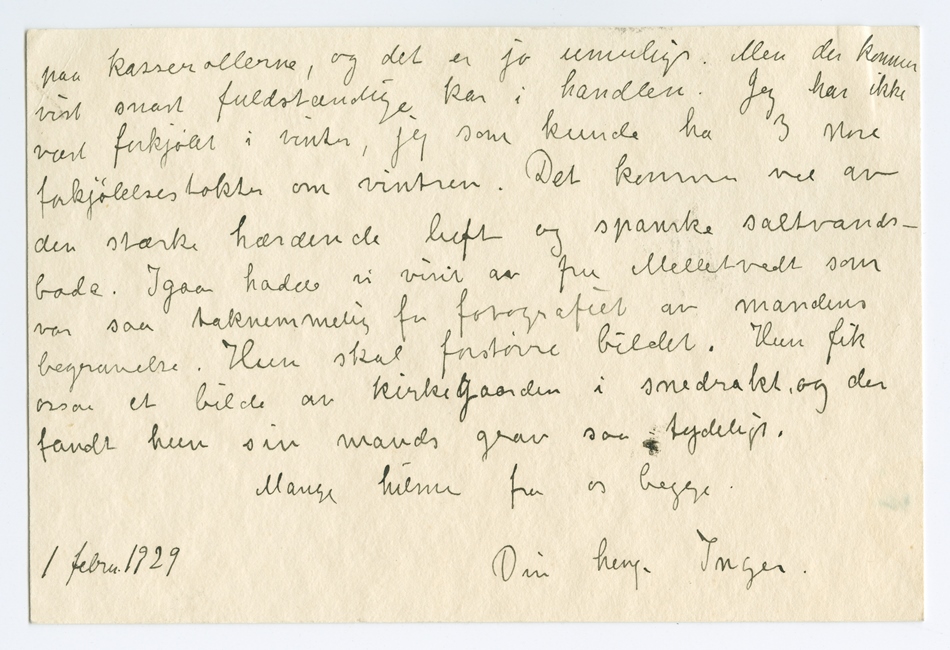 paa kasserollerne, og det er jo umuligt. Men der kommer
vist snart fuldstændige kar i handlen. Jeg har ikke
vært forkjølet i vinter, jeg som kunde ha 3 store
forkjølelsestokter om vintren. Det kommer vel av
den stærke hærdende luft og spanske saltvands-
bade. Igaar hadde vi visit av fru Melletvedt som
var saa taknemmelig for fotografiet av mandens
begravelse. Hun skal forstørre bildet. Hun fik
ossaa et bilde av kirkegaarden i snedrakt, og der
fandt hun sin mands grav saa tydeligt.
Mange hilsner fra os begge.
1 febru. 1929
Din heng. Inger.